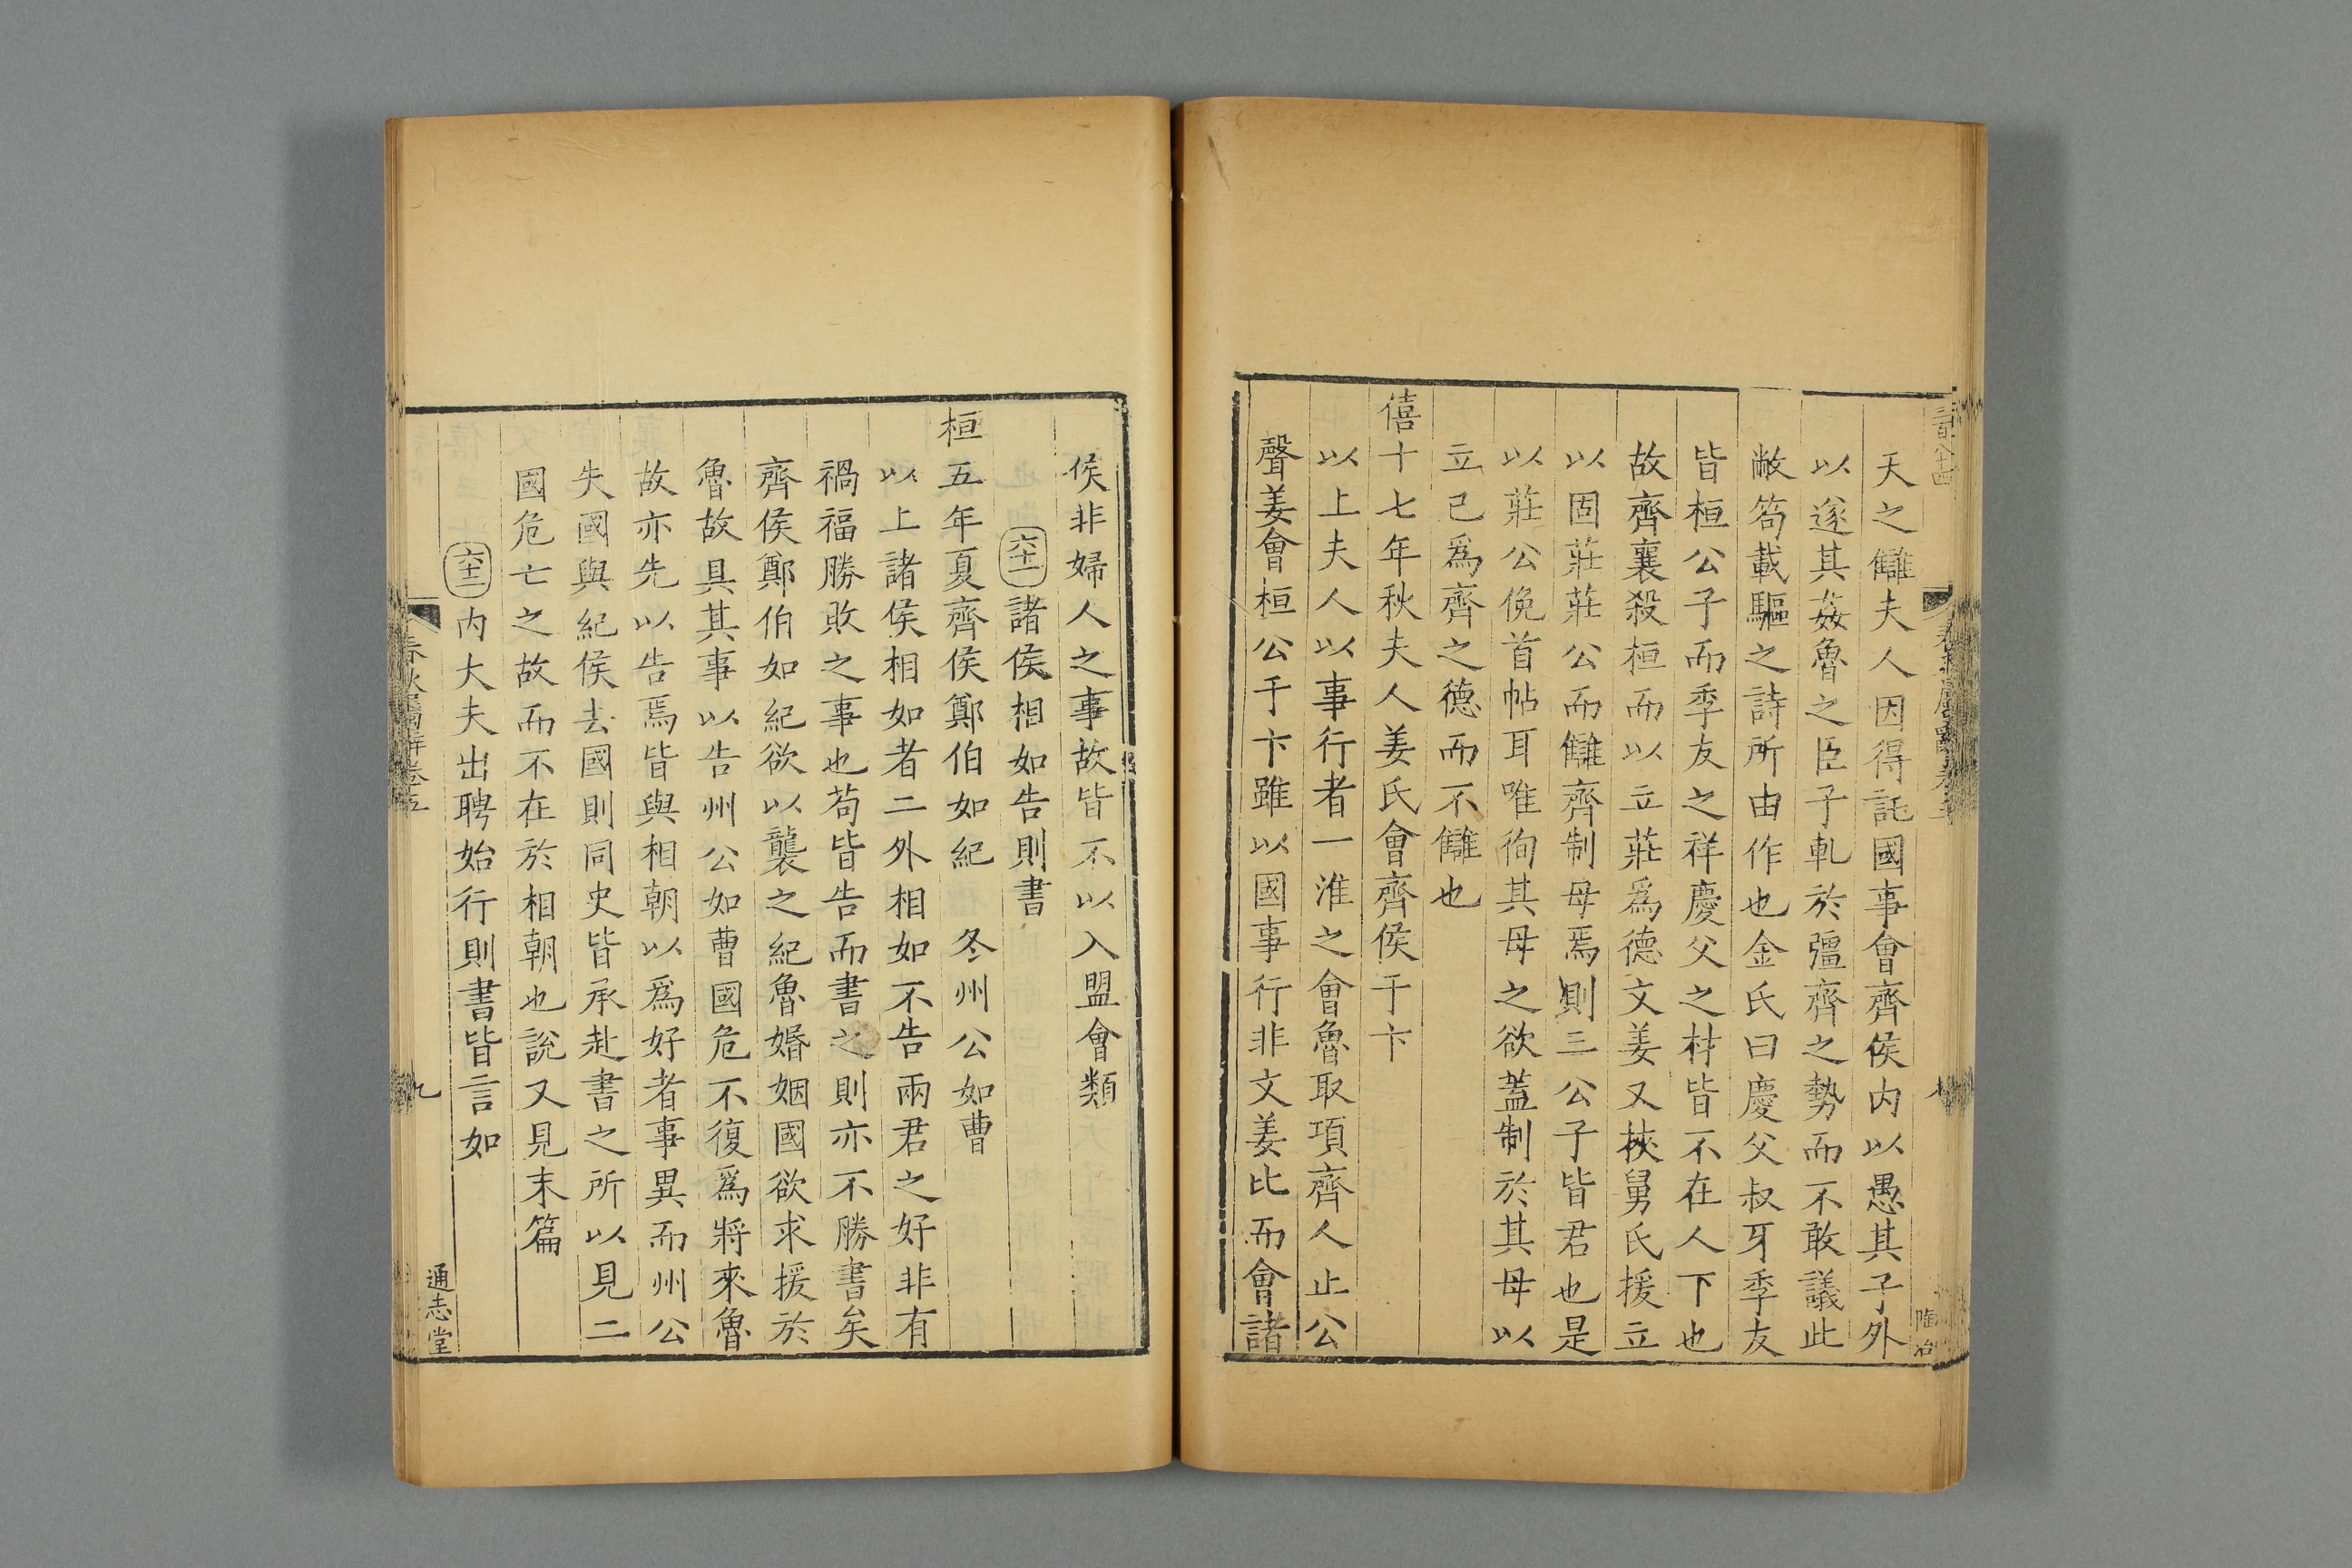 天之讎夫人因得託國事會齊侯内以愚其子外
以遂其姦魯之臣子軋於彊齊之勢而不敢議此
敝笱載驅之詩所由作也金氏曰慶父叔牙季友
皆桓公子而季友之祥慶父之材皆不在人下也
故齊襄殺桓而以立莊爲德文姜又挾舅氏援立
以固莊莊公而讎齊制母焉則三公子皆君也是
以莊公俛首帖耳唯徇其母之欲蓋制於其母以
立己爲齊之德而不讎也
僖十七年秋夫人姜氏會齊侯于卞
以上夫人以事行者一淮之會魯取項齊人止公
聲姜會桓公于卞雖以國事行非文姜比而會諸
陶冶
侯非婦人之事故皆不以入盟會類
六十一諸侯相如告則書
桓五年夏齊侯鄭伯如紀 冬州公如曹
以上諸侯相如者二外相如不告兩君之好非有
禍福勝敗之事也苟皆告而書之則亦不勝書矣
齊侯鄭伯如紀欲以襲之紀魯婚姻國欲求援於
魯故具其事以告州公如曹國危不復爲將來魯
故亦先以告焉皆與相朝以爲好者事異而州公
失國與紀侯去國則同史皆承赴書之所以見二
國危亡之故而不在於相朝也說又見末篇
六十二内大夫出聘始行則書皆言如
春秋屬辭卷五
九
通志堂